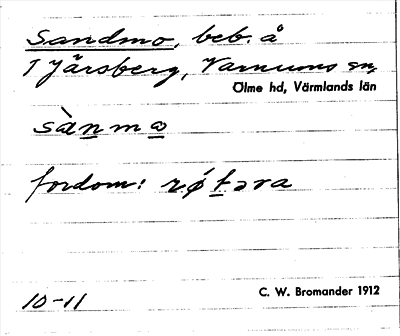 Sandmo, beb. å
1 Järsberg, Varnums sn,
Ölme hd, Värmlands län
sànmo
fordom: rǿtəra
10-11
C. W. Bromander 1912